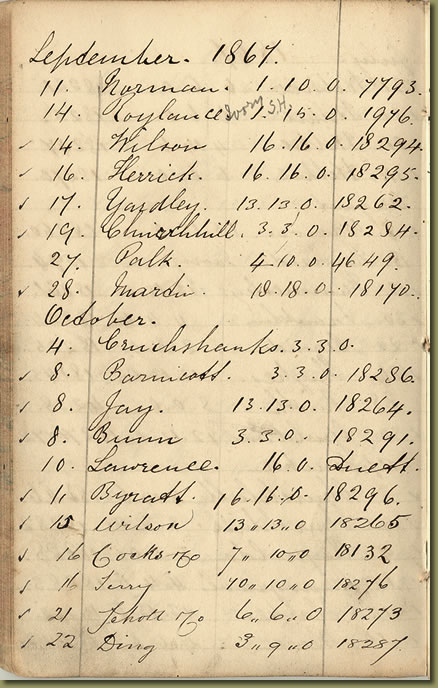 September. 1867.
11. Norman. 1. 10. 0. 7793.
14. Roylance Ivory S.H. 1. 15. 0. 1976.
✓ 14. Wilson 16. 16. 0. 18294.
✓ 16. Herrick. 16. 16. 0. 18295.
✓ 17. Yardley. 13. 13. 0. 18262.
✓ 19. Churchhill. 3. 3. 0. 18284.
27. Palk. 4. 10. 0. 4649.
✓ 28. Martin. 18. 18. 0. 18170.
October.
4. Cruchshanks. 3. 3. 0.
✓ 8. Barnicott. 3. 3. 0. 18286.
✓ 8. Jay. 13. 13. 0. 18264.
✓ 8. Bunn 3. 3. 0. 18291.
10. Lawrence. 16. 0. Duett.
✓ 11. Byratt. 16. 16. 0. 18296.
✓ 15 Wilson 13 " 13 " 0 18265
✓ 16 Cocks & Co 7 " 10 " 0 18132
✓ 16 Terry 10 " 10 " 0 18276
✓ 21 Scholt & Co 6 " 6 " 0 18273
✓ 22 Ding 3 " 9 " 0 18287